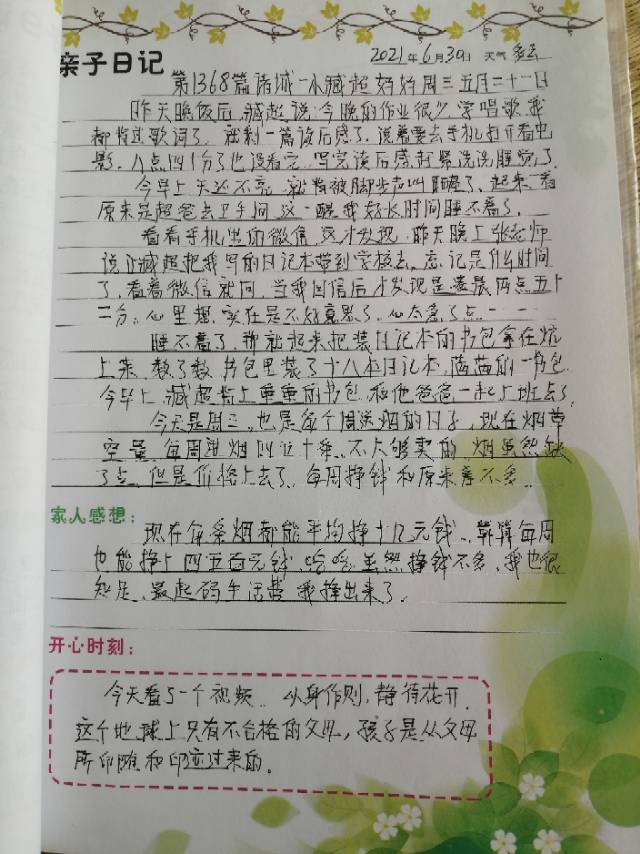 亲子日记
2021年6月30日 天气 多云
第1368篇诸城一小臧超妈妈周三五月二十一日
昨天晚饭后,臧超说:今晚的作业很少,学唱歌,我
都背过歌词了,就剩一篇读后感了。说着要去手机打开看电
影。八点四十分了也没看完,写完读后感赶紧洗洗睡觉了。
今早上天还不亮,就将被脚步声叫醒了、起来一看
原来是超爸去卫生间,这一醒我好长时间睡不着了。
看看手机里的微信,这才发现:昨天晚上张老师
说让臧超把我写的日记本带到学校去。忘记是什么时间
了,看着微信就问,当我回信后才发现是凌晨两点五十
二分。心里想,实在是不好意思了。心太急了点
睡不着了,我就起来把装日记本的书包拿在炕
上来,数了数书包里装了十八本日记本,满满的一书包
今早上臧超背上重重的书包和他爸爸一起上班去了。
今天是周三,也是每个周送烟的日子,现在烟草
定量,每周进烟四五十条,不太够卖的,烟虽然缺
了点,但是价格上去了、每周挣钱和原来差不多。
家人感想:
现在每条烟都能平均挣十几元钱,算算每周
也能挣上四五百元钱,哈哈,虽然挣钱不多,我也很
知足、最起码生活费我挣出来了。
开心时刻:
今天看了一个视频 以身作则,静待花开
这个地球上只有不合格的父母,孩子是从父母
所印随和印迹过来的。